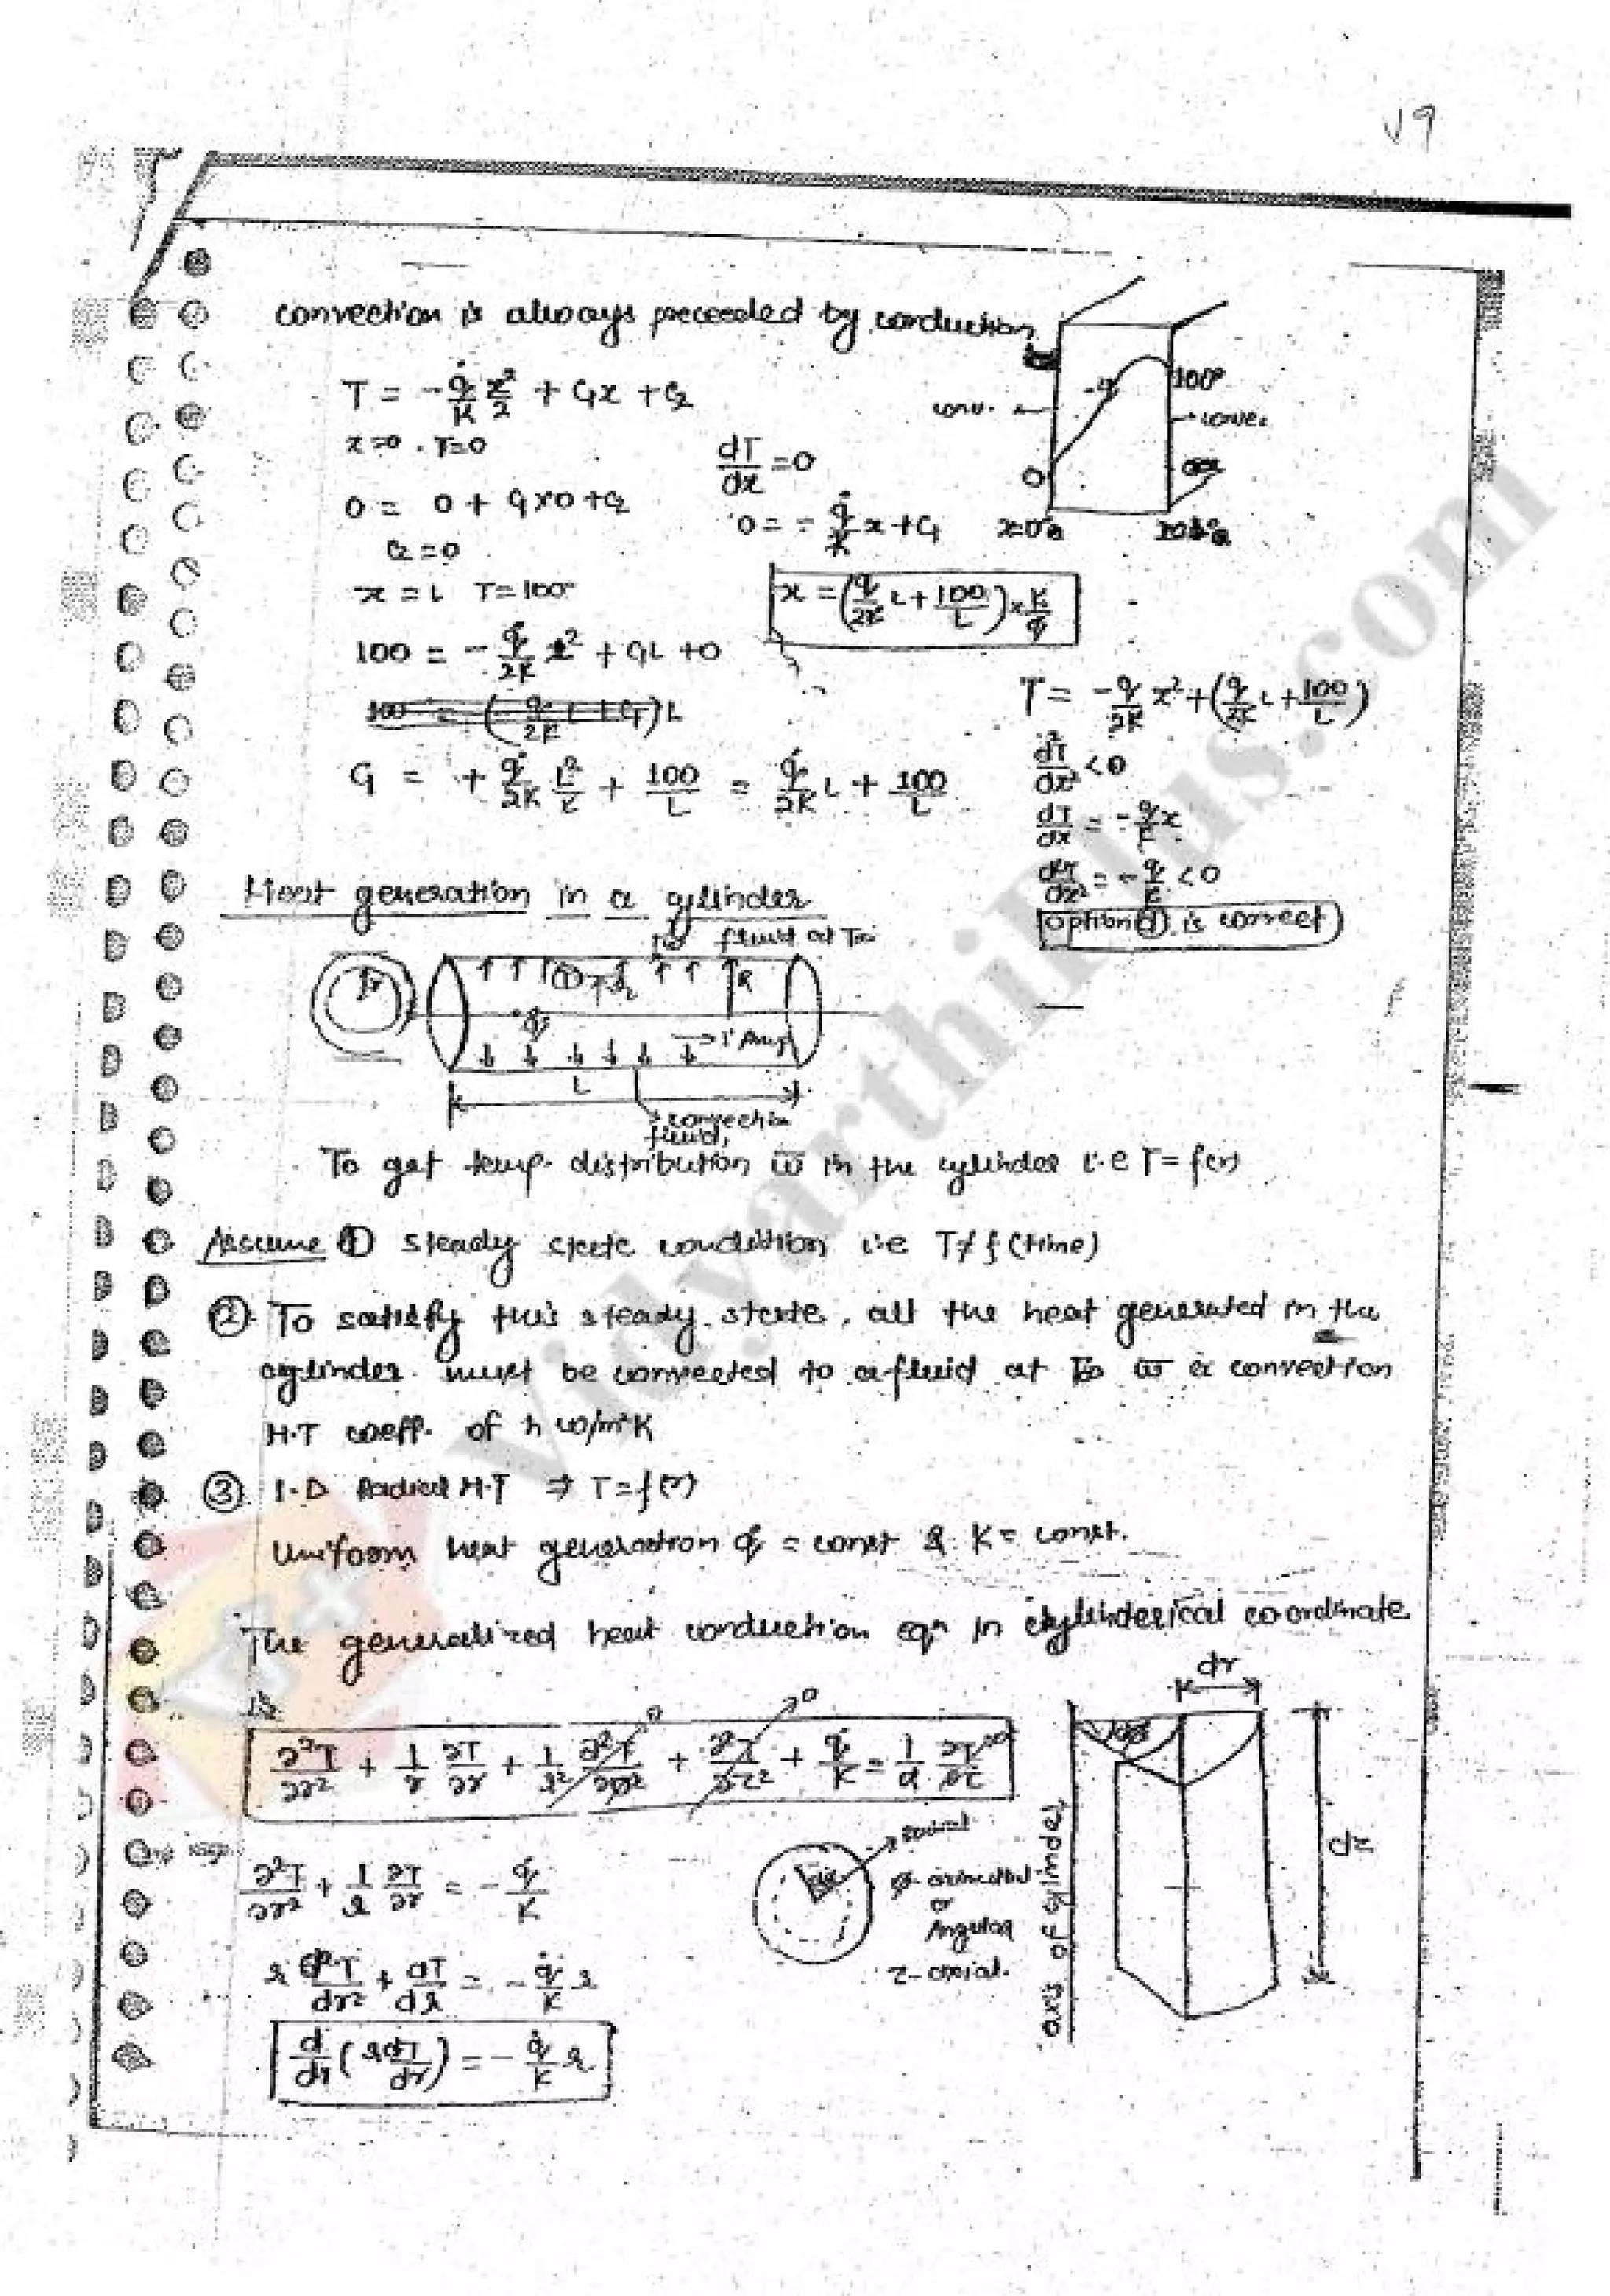 convection is always preceeded by conduction
T = - q̇/K x²/2 + C₁x + C₂
x=0 . T=0
0 = 0 + C₁x0 + C₂
C₂ = 0
x = L T = 100°
100 = - q̇/2K L² + C₁L + 0
C₁ = + q̇/2K L²/L + 100/L = q̇/2K L + 100/L
dT/dx = 0
0 = - q̇/K x + C₁
x = (q̇/2K L + 100/L) x K/q̇
conv.
100°
conve.
0
x=0
T = - q̇/2K x² + (q̇/2K L + 100/L)
d²T/dx² < 0
dT/dx = - q̇/K x
d²T/dx² = - q̇/K < 0
option (d) is correct
Heat generation in a cylinder
fluid at T∞
R
q̇
L
convection
fluid,
To get temp. distribution w̅ in the cylinder i.e T = f(r)
Assume ① steady state condition i.e T ≠ f (time)
② To satisfy this steady state, all the heat generated in the
cylinder must be convected to a fluid at T∞ w̅ a convection
H.T coeff. of h w/m²K
③ 1-D Radial H.T ⇒ T = f(r)
Uniform heat generation q̇ = const & K = const.
The generalized heat conduction eqⁿ in cylinderical co-ordinate
is
∂²T/∂r² + 1/r ∂T/∂r + 1/r² ∂²T/∂ø² + ∂²T/∂z² + q̇/K = 1/α ∂T/∂τ
0
0
0
∂²T/∂r² + 1/r ∂T/∂r = - q̇/K
r d²T/dr² + dT/dr = - q̇/K r
d/dr (r dT/dr) = - q̇/K r
Radial
or
Angular
z-axial.
dr
dz
axis of cylinder
vidyarthiplus.com
V+